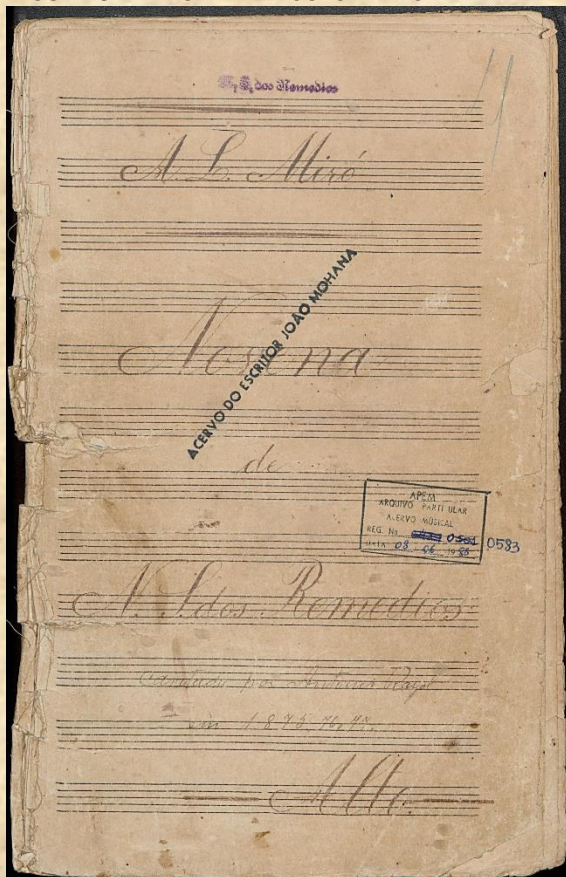 N. S. dos Remedios
A. L. Miró
Novena
ACERVO DO ESCRITOR JOÃO MOHANA
de
APEM
ARQUIVO PARTICULAR
ACERVO MUSICAL
REG. No 0583
DATA 08 06 1985
N. S. dos Remedios
Cantado por Antonio Rayol
em 1875, 76, 77.
Alto